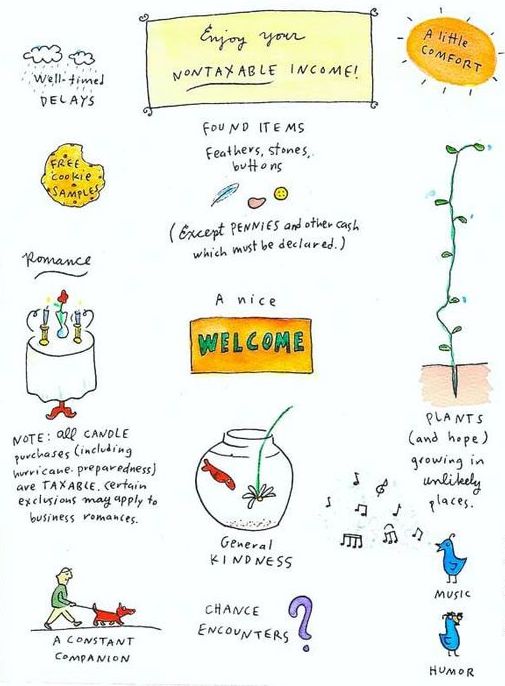 Enjoy your
NONTAXABLE INCOME!
Well-timed
DELAYS
A little
COMFORT
FREE
Cookie
SAMPLES
FOUND ITEMS
Feathers, stones,
buttons
(Except PENNIES and other cash
which must be declared.)
Romance
A nice
WELCOME
NOTE: all CANDLE
purchases (including
hurricane preparedness)
are TAXABLE. Certain
exclusions may apply to
business romances.
PLANTS
(and hope)
growing in
unlikely
places.
General
KINDNESS
MUSIC
A CONSTANT
COMPANION
CHANCE
ENCOUNTERS
?
HUMOR